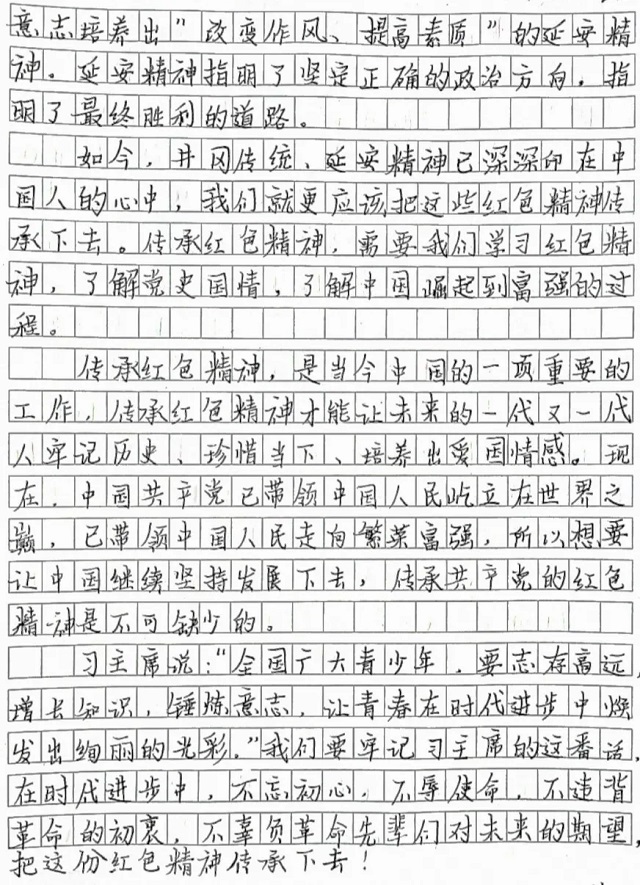 意志培养出"改变作风、提高素质"的延安精
神。延安精神指明了坚定正确的政治方向，指
明了最终胜利的道路。
如今，井冈传统、延安精神已深深印在中
国人的心中，我们就更应该把这些红色精神传
承下去。传承红色精神，需要我们学习红色精
神，了解党史国情，了解中国崛起到富强的过
程。
传承红色精神，是当今中国的一项重要的
工作，传承红色精神才能让未来的一代又一代
人牢记历史、珍惜当下、培养出爱国情感。现
在，中国共产党已带领中国人民屹立在世界之
巅，已带领中国人民走向繁荣富强，所以想要
让中国继续坚持发展下去，传承共产党的红色
精神是不可缺少的。
习主席说："全国广大青少年，要志存高远，
增长知识，锤炼意志，让青春在时代进步中焕
发出绚丽的光彩。"我们要牢记习主席的这番话，
在时代进步中，不忘初心，不辱使命，不违背
革命的初衷，不辜负革命先辈们对未来的期望，
把这份红色精神传承下去！